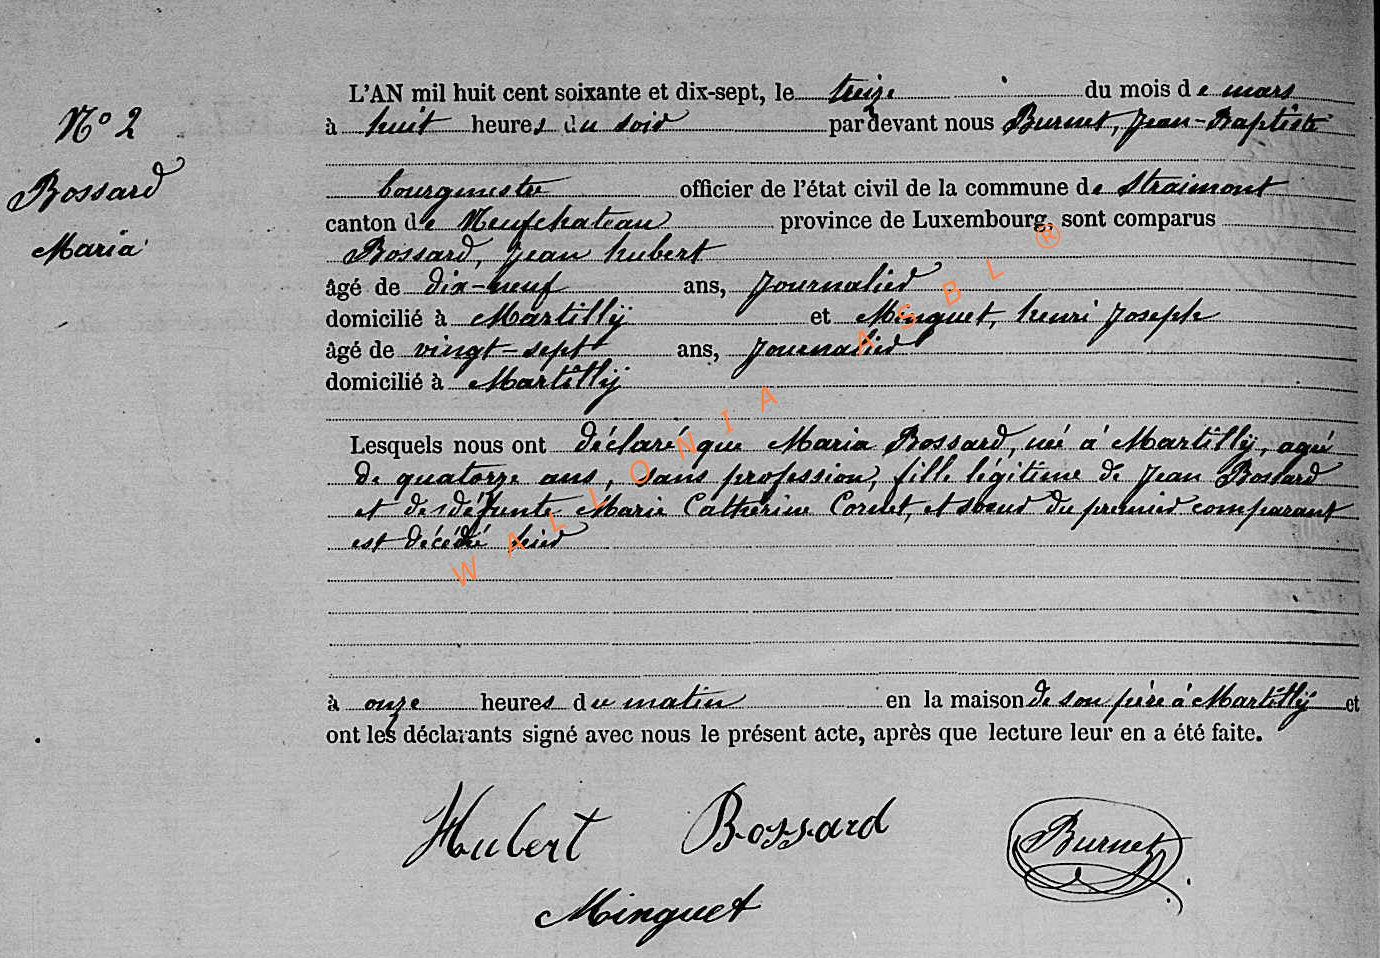 N° 2
Bossard
Maria
L'AN mil huit cent soixante et dix-sept, le treize du mois de mars
à huit heures du soir pardevant nous Burnet, Jean-Baptiste
bourgmestre officier de l'état civil de la commune de Straimont
canton de Neufchateau province de Luxembourg, sont comparus
Bossard, Jean hubert
âgé de dix-neuf ans, Journalier
domicilié à Martilly et Minguet, henri Joseph
âgé de vingt-sept ans, Journalier
domicilié à Martilly
Lesquels nous ont déclaré que Maria Bossard, né à Martilly, agée
de quatorze ans, sans profession, fille légitime de Jean Bossard
et de défunte Marie Catherine Cornet, et sœur du premier comparant
est décédé hier
à onze heures du matin en la maison de son père à Martilly et
ont les déclarants signé avec nous le présent acte, après que lecture leur en a été faite.
Hubert Bossard Burnet
Minguet
WALLONIA ASBL ®